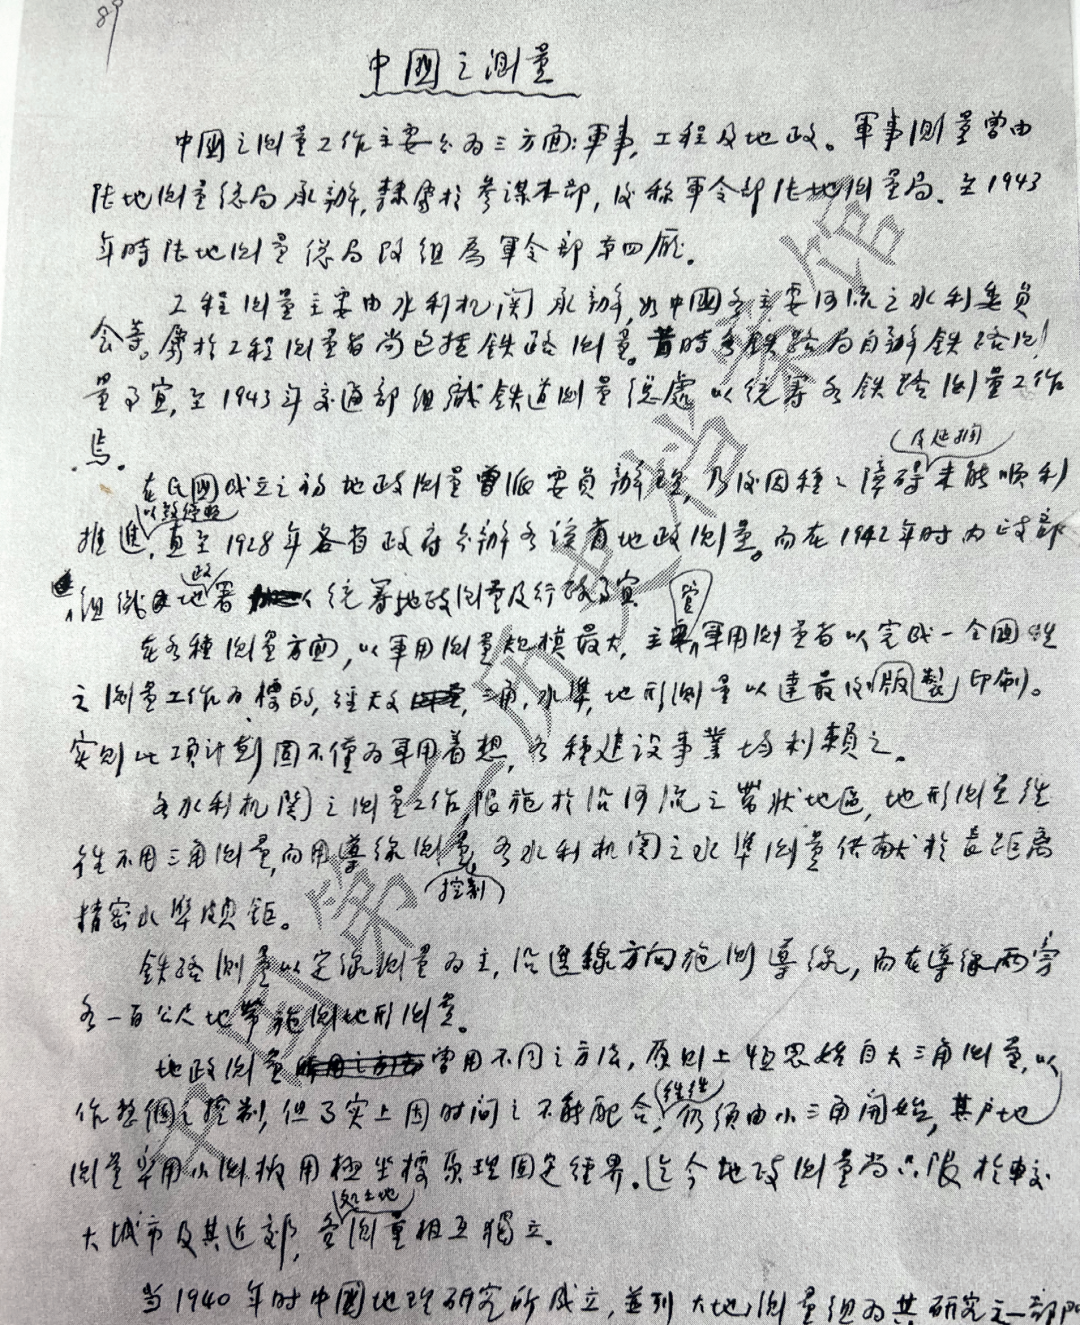 89
中國之測量
中國之測量工作主要分为三方面:軍事,工程及地政。軍事測量曾由
陆地測量總局承辦,隸屬於參謀本部,後称軍令部陆地測量局.至1943
年時陆地測量總局改組為軍令部第四厰.
工程測量主要由水利机関承辦,如中國各主要河流之水利委員
会等。屬於工程測量者尚包括鉄路測量。昔時各鉄路局自辦鉄路測
量事宜,至1943年交通部組織鉄道測量總處以統筹各鉄路測量工作
焉.
及延搁
在民國成立之初地政測量曾派委員辦理,乃後因種々障碍未能順利
以致停頓
推進,直至1928年各省政府分辦各該省地政測量。而在1942年时内政部
政
組織地署以統筹地政測量及行政事宜
管
在各種測量方面,以軍用測量規模最大,主軍用測量者以完成一全國性
之測量工作为標的,經天文,三角,水準,地形測量以達最後版製印刷。
实則此項計劃固不僅为軍用着想,各種建设事業均利賴之。
各水利机関之測量工作,限施於沿河流之帶狀地區,地形測量往
往不用三角測量,而用導線測量,各水利机関之水準測量供献於長距離
控制
精密水準頗鉅。
鉄路測量以定線測量为主,沿選線方向施測導線,而在導線兩旁
各一百公尺地帶施測地形測量。
地政測量曾用不同之方法,原則上恒思始自大三角測量,以
往往
作整個之控制,但事实上因时间之不能配合,仍须由小三角開始,其户地
測量采用小測板用極坐標原理固定經界.迄今地政測量尚只限於較
如土地
大城市及其近郊,各測量相互獨立.
当1940年时中國地理研究所成立,並列大地測量組为其研究之一部門